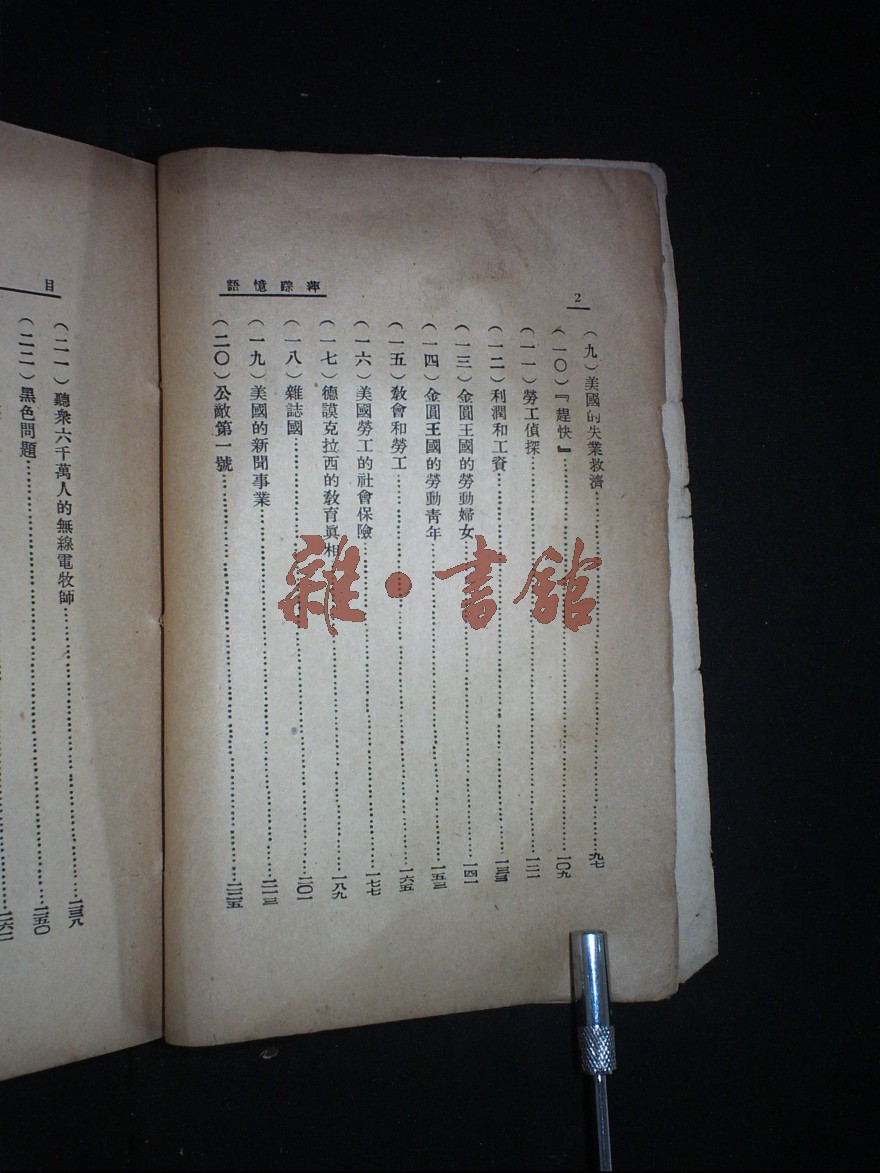 2
萍踪憶語
(九)美國的失業救濟……九七
(一〇)『趕快』……一〇九
(一一)勞工偵探……一二一
(一二)利潤和工資……一三三
(一三)金圓王國的勞動婦女……一四一
(一四)金圓王國的勞動青年……一五三
(一五)敎會和勞工……一六五
(一六)美國勞工的社會保險……一七七
(一七)德謨克拉西的敎育眞相……一八九
(一八)雜誌國……二〇一
(一九)美國的新聞事業……二一三
(二〇)公敵第一號……二二五
目
(二一)聽衆六千萬人的無線電牧師……二三八
(二二)黑色問題……二五〇
雜·書館